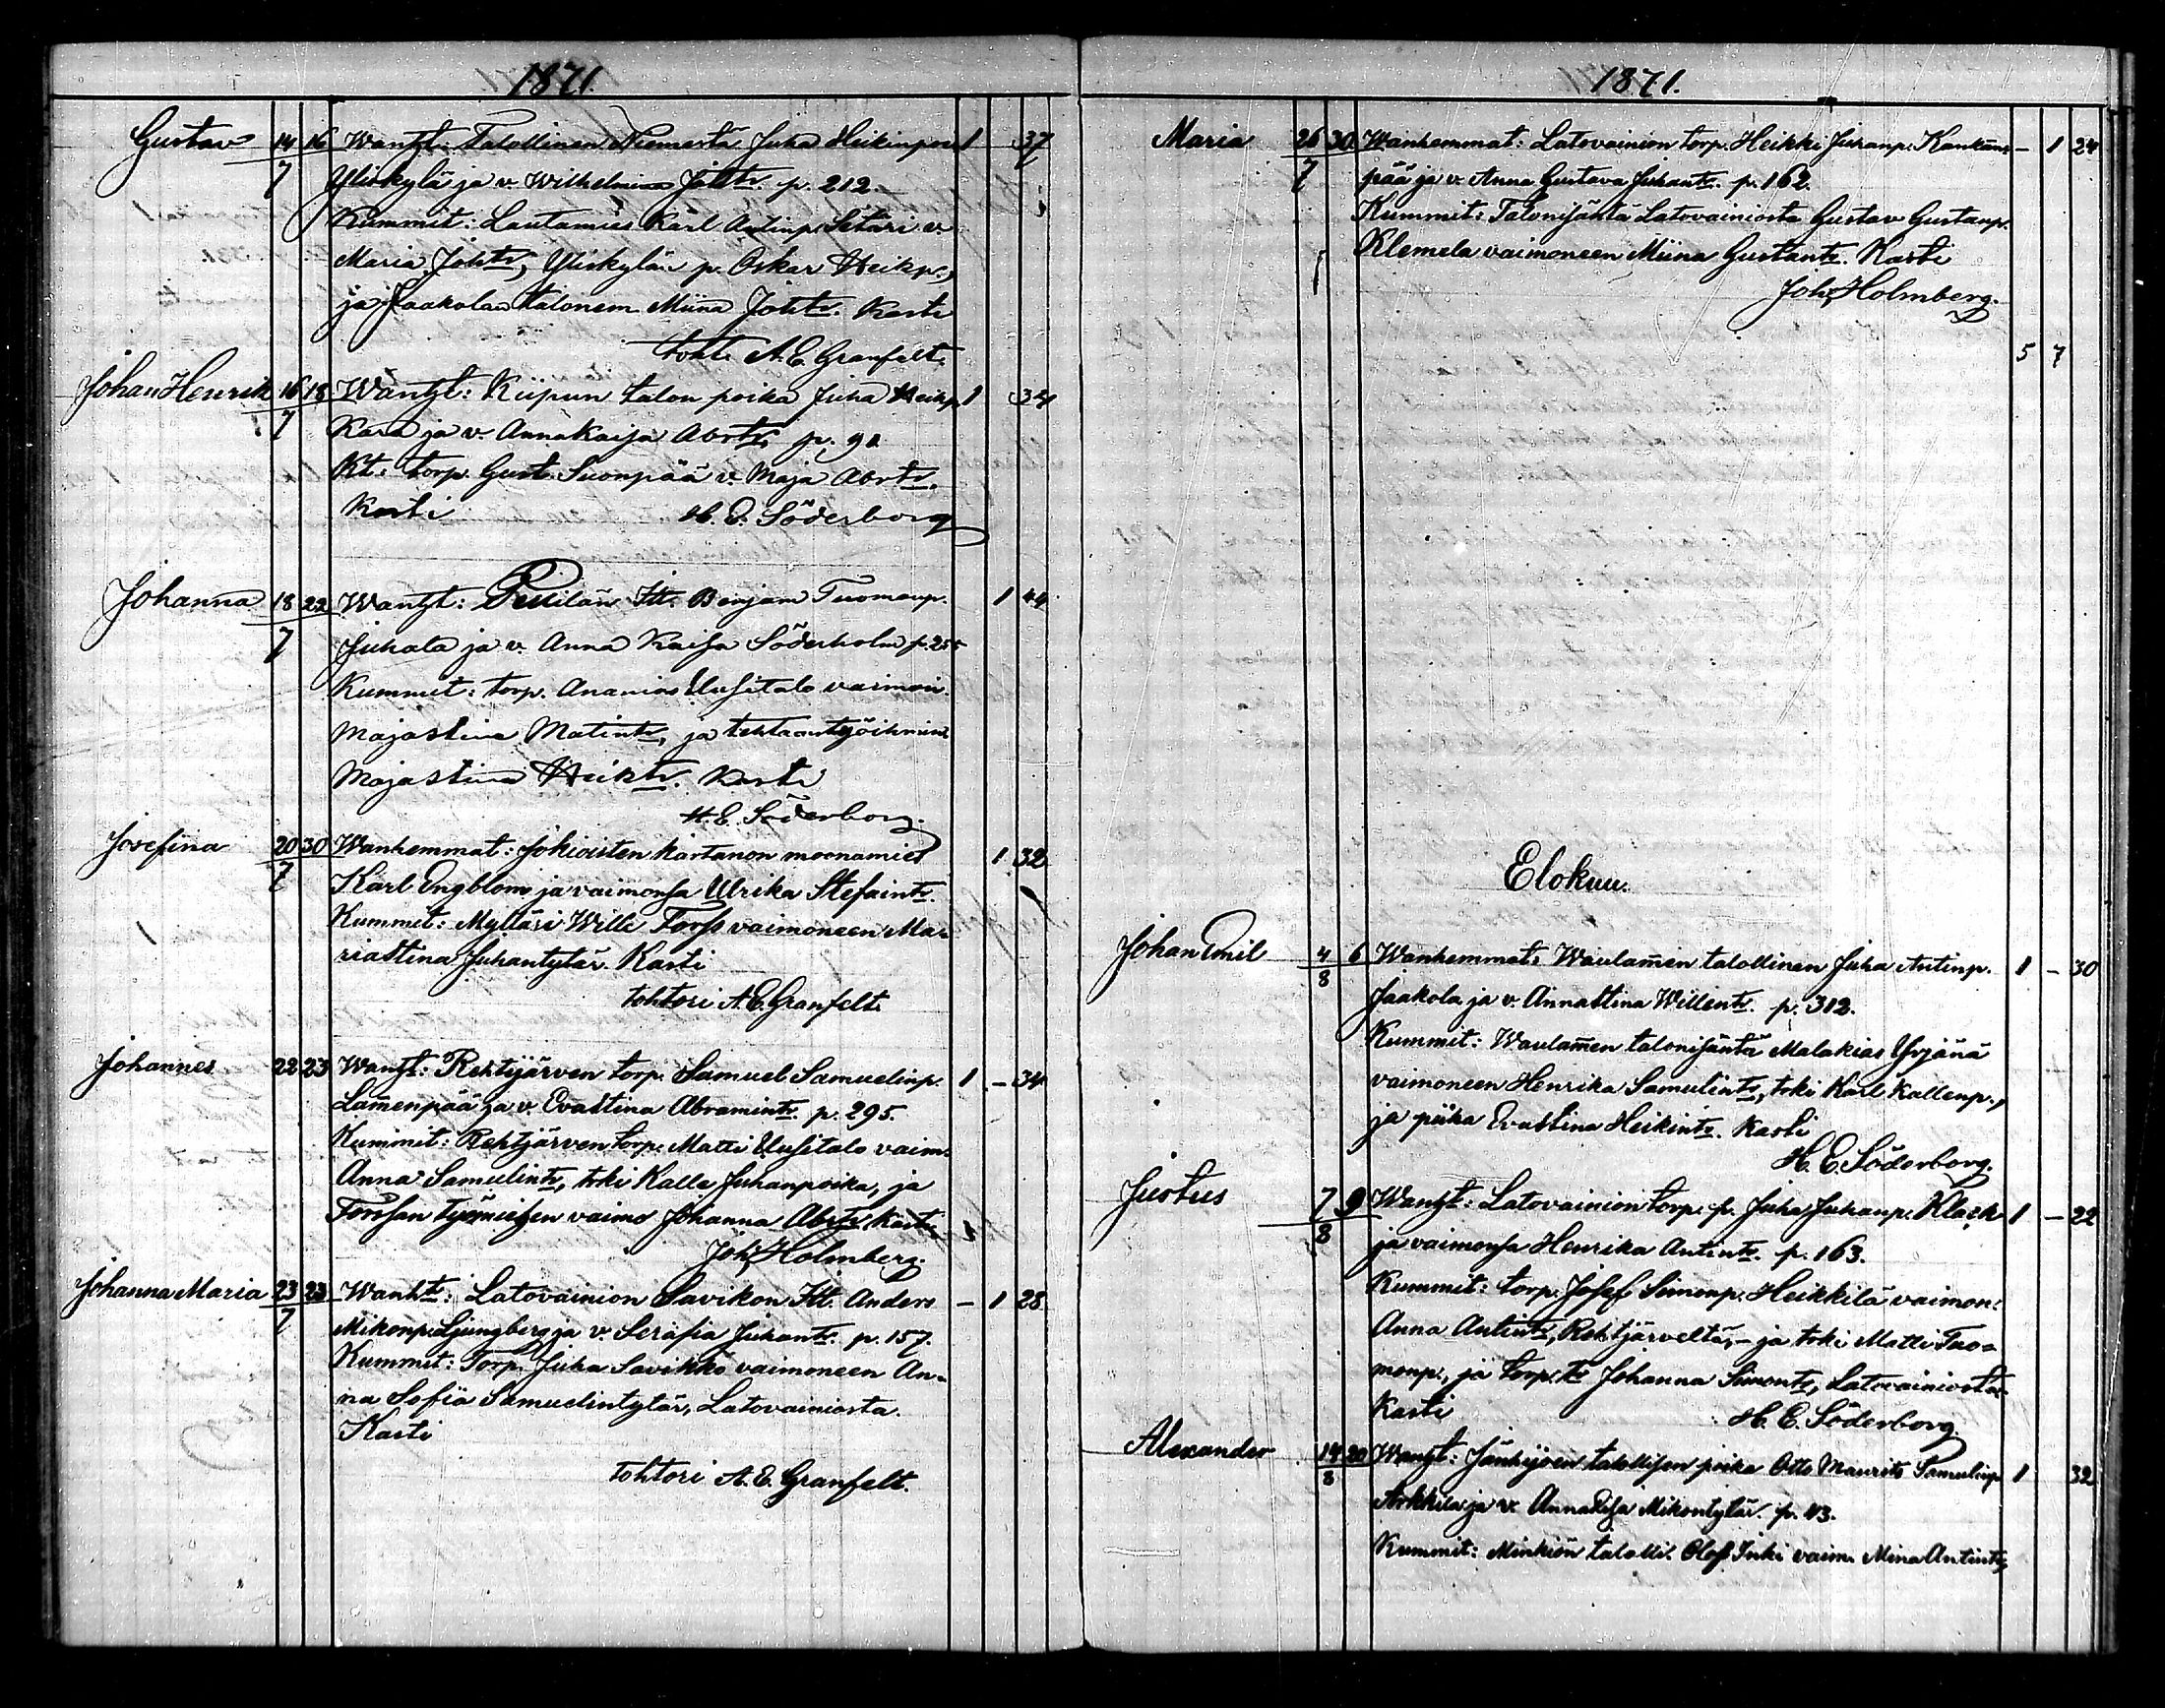 1871.
Gustav 14 16 Wanht: Talollinen Niemestä Juha Heikinpoi 1 37
7 Yliskylä ja v. Wilhelmina Joht. p. 212.
Kummit: Lautamies Karl Antinp. Sètäri v.
Maria Joht., Yliskylän p. Oskar Heikp.,
ja Jaakolan talonem. Miina Joht. Kasti
toht. A. E. Granfelt.
Johan Henrik 16 18 Wanht: Kiipun talon poika Juha Heikp. 1 34
7 Kara ja v. Annakaisa Abrtr. p. 91
Kt: torp. Gust. Suonpää v. Maja Abrtr.
Kasti H. E. Söderborg
Johanna 18 22 Wanht: Itt. Benjam Tuomanp. 1 44
7 Juhala ja v. Anna Kaisa Söderholm p. 255
Kummit: torp. Ananias Uusitalo vaimon.
Majastina Matintr., ja tehtaantyöihmin.
Majastina Heiktr. Kasti
H. E. Söderborg.
Josefina 20 30 Wanhemmat: Jokioisten kartanon moonamies 1 32
7 Karl Engblom ja vaimonsa Ulrika Stefaintr.
Kummit: Myllari Wille Forss vaimoneen Ma-
riastina Juhantytär. Kasti
tohtori A. E. Granfelt.
Johannes 22 23 Wanht: Rehtijärven torp. Samuel Samuelinp. 1 – 34
Lam̄enpää ja v. Evastina Abramintr. p. 295.
Kummit: Rehtjärven torp. Matti Uusitalo vaim.
Anna Samulintr, trki Kalle Juhanpoika, ja
Forssan työmiehen vaimo Johanna Abrtr. Kasti
Joh. Holmberg.
Johanna Maria 23 23 Wanht: Latovainion Savikon Itt. Anders – 1 28
7 Mikonp. Ljungberg ja v. Serafia Juhantr. p. 157.
Kummit: Torp. Juha Savikko vaimoneen An-
na Sofia Samuelintytär, Latovainiosta.
Kasti
tohtori A. E. Granfelt.
1871.
Maria 26 30 Wanhemmat: Latovainion torp. Heikki Juhanp. Kankām- – 1 24
7 pää ja v. Anna Gustava Juhantr. p. 162.
Kummit: Talonisäntä Latovainiosta Gustav Gustanp.
Klemela vaimoneen Miina Gustantr. Kasti
Joh. Holmberg.
5 7
Elokuu.
Johan Emil 4 6 Wanhemmat: Waulam̄en talollinen Juha Antinp. 1 – 30
8 Jaakola ja v. Annastina Willentr. p. 312.
Kummit: Waulam̄en talonisäntä Malakias Yrjänä
vaimoneen Henrika Samulintr., trki Karl Kallenp.,
ja piika Evastina Heikintr. Kasti
H. E. Söderborg.
Justus 7 9 Wanht: Latovainion torp. p. Juha Juhanp. Klack 1 – 22
8 ja vaimonsa Henrika Antintr. p. 163.
Kummit: torp. Josef Simonp. Heikkilä vaimon:
Anna Antintr, Rehtjärveltä, – ja trki Matti Tuo-
monp., ja torp. tr Johanna Simontr, Latovainiosta
Kasti H. E. Söderborg
Alexander 14 20 Wanht: Jänhijoen talollisen poika Otto Maurits Samulinp 1 32
8 Arkkila ja v. Mikontytär. p. 113.
Kummit: Minkiön talolli. Olof Inki vaim. Mina Antintr,